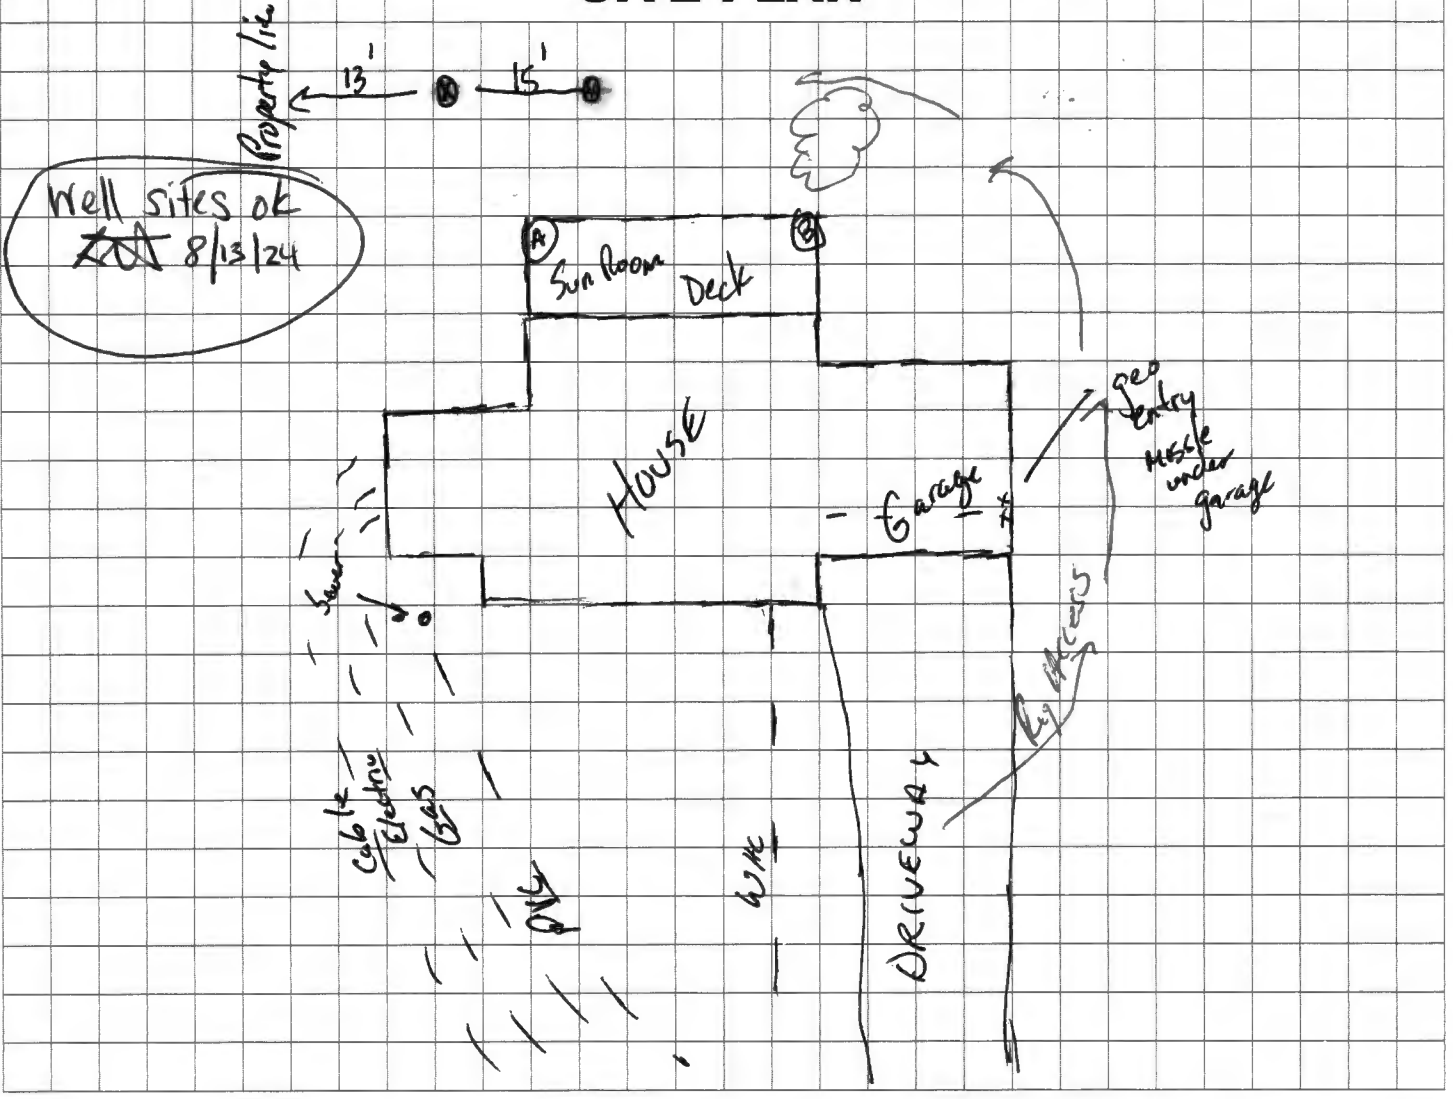 SITE PLAN
Property line
13'
15'
Well sites ok
8/13/24
A
B
Sun Room
Deck
House
Garage
geo
entry
Missle
under
garage
Sewer
Rig Access
Cable
Electric
Gas
DRIVEWAY